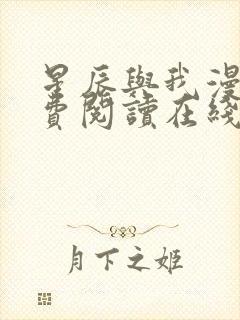 星辰與我漫
費閱讀在綫
月下之姬